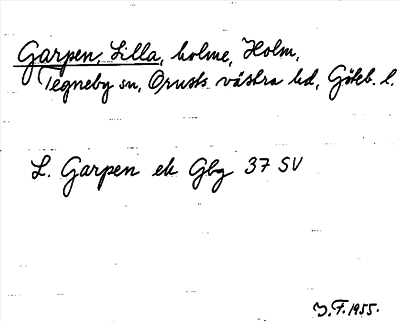 Garpen, Lilla, holme, Holm,
Tegneby sn, Orusts västra hd, Göteb. l.
L. Garpen ek Gbg 37 SV
J.F. 1955.